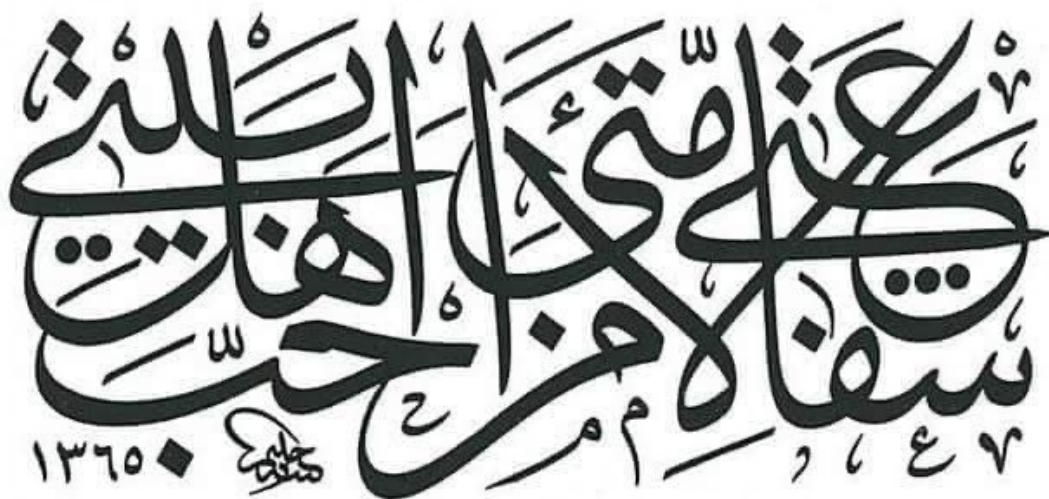 شَفَاعَتِي لِأُمَّتِي مَنْ أَحَبَّ أَهْلَ بَيْتِي
١٣٦٥